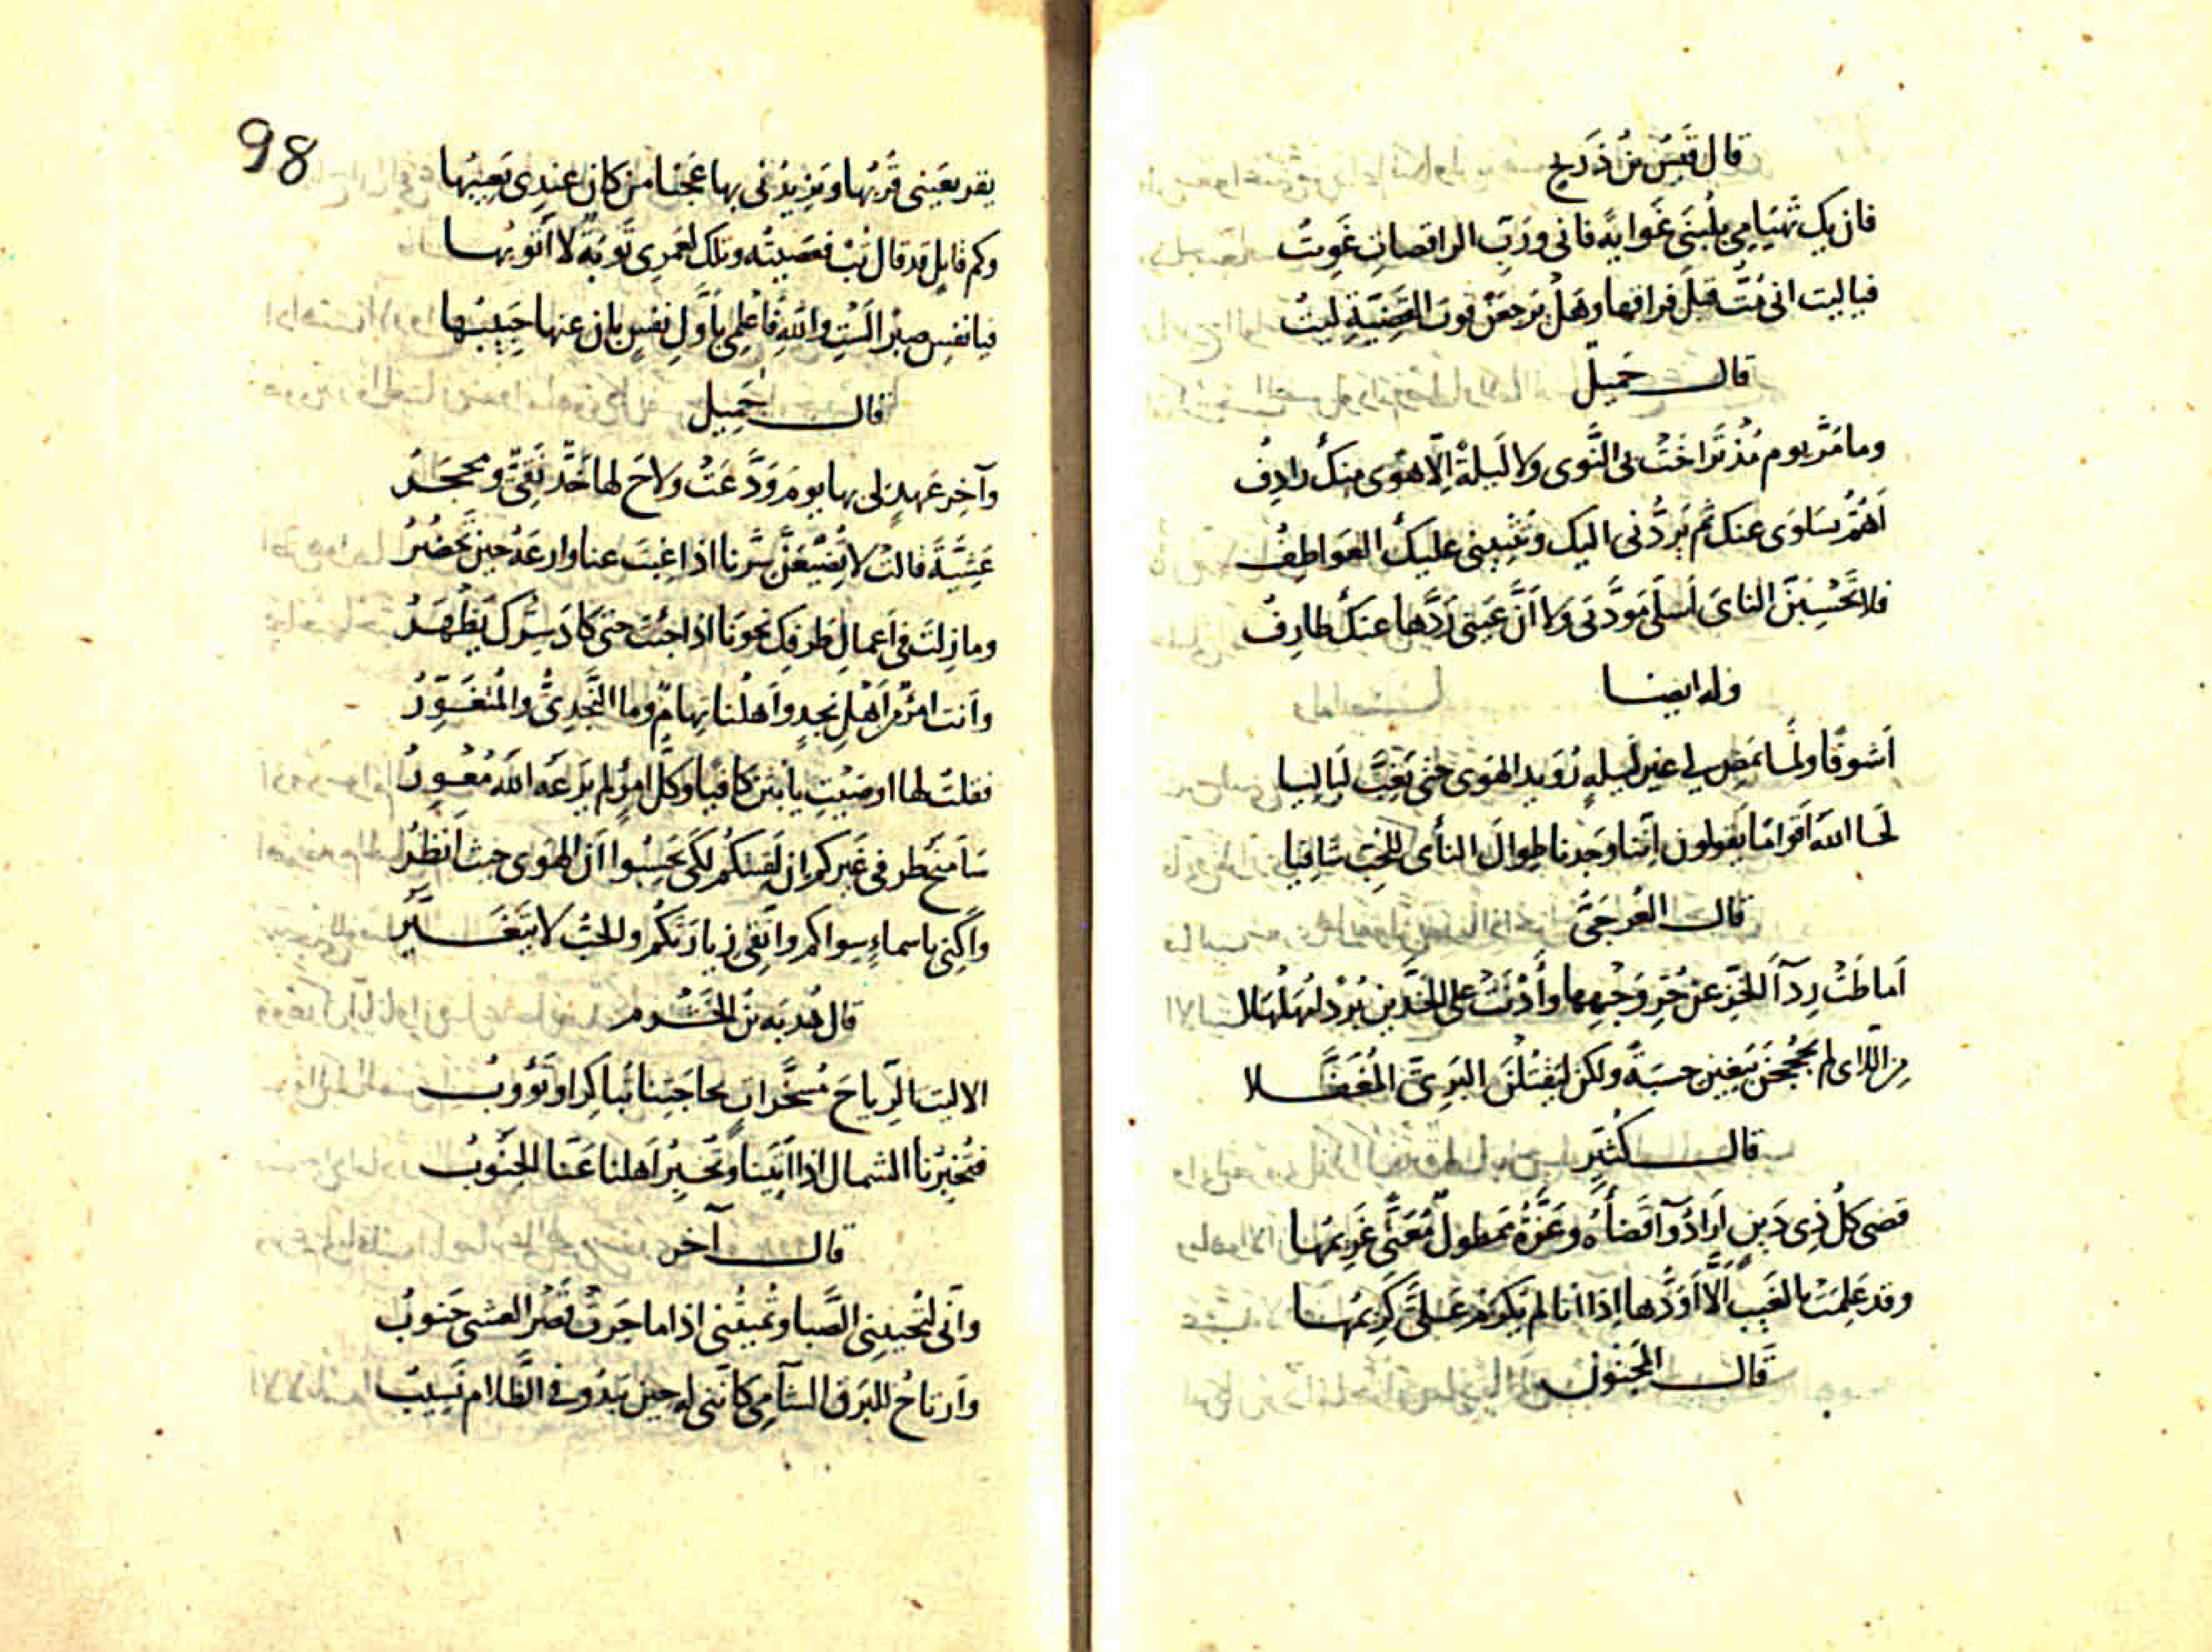 قال قَيسُ بنُ ذَريح
فان يك تَهيَامِي بلُبنَى غَوايةً فاني وربِّ الراقصاتِ غَويتُ
فياليت اني مُتُّ قبلَ فراقها وهَلْ تَرجعَنْ فوتَ القَضِيَّةِ ليتُ
قال جَميلٌ
وما مَرَّ يوم مُذ تَراخَتْ بي النَّوى ولا لَيلةٌ اِلّا هَوًى مِنكِ رادِفُ
اَهُمُّ بسَلوَى عنكِ ثم يَرُدُّني اليكِ وتَثْنيني عليكِ العَواطِفُ
فلا تَحْسِبَنَّ النايَ اَسلَى مَوَدَّتي ولا اَنَّ عَيني رَدَّها عنكِ طارِفُ
وله ايضا
اَشوقًا ولَمّا تَمضِ لي غير ليلةٍ رُوَيد الهَوى حتى تَغِبَّ لَياليا
لَحا اللّه اَقوامًا يَقولون اِنّنا وجدنا طِوالَ النأى للحُبّ شافيا
قال العَرجَىّ
اَماطَتْ رِدآ الخَزِّ عن حُرِّ وَجْهِها وأدْنَتْ على الخَدَّينِ بُرْدًا مُهَلْهَلا
مِنَ اللّاى لم يَحجُجنَ يَبغين حسبَةً ولكن ليَقتُلنَ البَرِىَّ المُغَفَّلا
قال كُثَيّر
قضى كُلُّ ذِى دَينٍ اَرادُوآ اقتضأه وعَزَّةُ مَمطولٌ مُعَنًّى غَرِيمُها
وقد عَلِمَت بالغَيبِ اَلّا اَوَدُّها اِذا انا لم يَكرُم عَلىَّ كَرِيمُها
قال المَجنون
98
يقر بعَينى قُربُها ويَزِيدُنى بها عَجَبا من كان عندِى يَعِيبُها
وكم قايِلٍ قد قال تُبْ فعصَيتُه وتلك لعَمرِى تَوبَةٌ لا اَتُوبُها
فيا نفسِ صبرًا لَستِ واللّهِ فاعلمِى باَوَّلِ نفسٍ بان عنها حَبِيبُها
قال جَمِيل
وآخِرِ عَهدٍ لى بها يومَ وَدَّعَتْ ولاحَ لها خَدٌّ نَقِىٌّ ومَحجَرُ
عَشِيَّةَ قالت لا تُضِيعَنَّ سِرَّنا اذا غِبتَ عنا وارعَهُ حين تَحضُرُ
وما زِلتَ فى اَعمالِ طَرفِك نحوَنا اذا جئتَ حتى كادَ سِرُّك يَظْهَرُ
وأنت امرُؤٌ من اَهلِ نجدٍ واَهلُنا تِهامٌ وما النَّجدِىُّ والمُتَغَوِّرُ
فقلت لها اوصَيْتِ يا بَثنَ كافيا وكلُّ امرِئٍ لم يَرعَه اللّهُ مُعْوِرُ
سَاَمنَحُ طرفى غَيركم ان لَقيتُكم لكَى يَحسِبُوا اَنَّ الهَوى حيث اَنظُرُ
واَكنِى باسماءٍ سِواكم واَتَّقِى زيارَتَكُم والحبُّ لا يَتَغَيَّر
قال هُدبَه بنُ الخَشْرم
الا ليت الرِّياحَ مُسَخَّراتٍ بحاجَتِنا تُباكِرُ او تَؤُوبُ
فتُخبِرُنا الشمال اذا اَتَينا وتُخبِرُ اَهلنا عَنّا الجَنُوبُ
قال آخر
وانّى لتُحيِينى الصَّبا وتُمِيتُنى اذا ما جَرَت قَصْرَ العشىِّ جَنوبُ
واَرتاحُ للبَرقِ الشآمِى كانّنى له حين يَبدُو فى الظَّلام نَسِيبُ